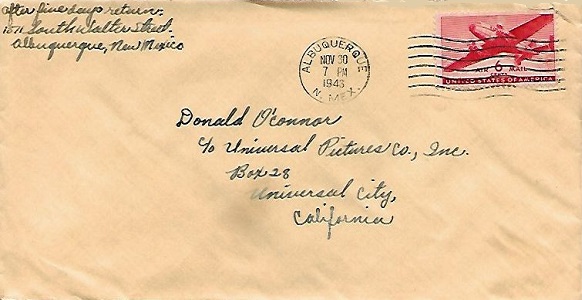 after five days return.
1511 South Walter Street.
Albuquerque, New Mexico
ALBUQUERQUE
NOV 30
7 PM
1943
N. MEX.
AIR 6 MAIL
CENTS
UNITED STATES OF AMERICA
Donald O'connor
c/o Universal Pictures Co., Inc.
Box 28
Universal City,
California